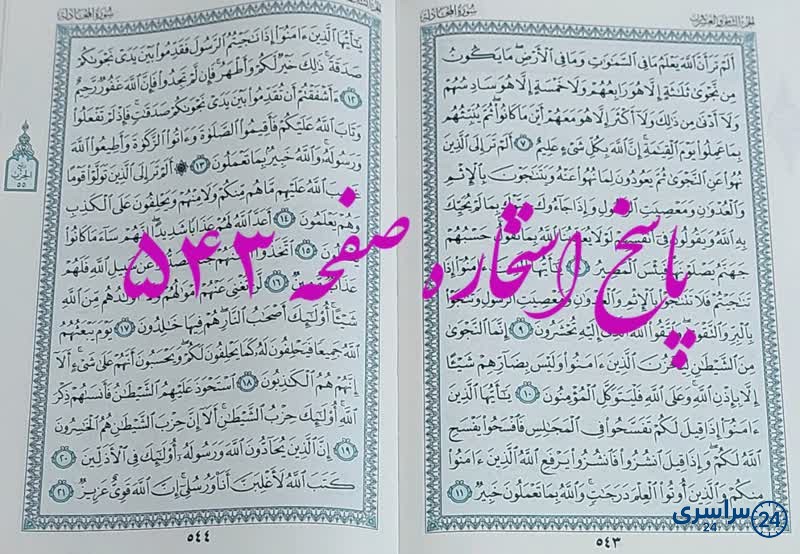 الجزء الثامن والعشرون
سورة المجادلة
ألم تر أن الله يعلم ما في السموات وما في الأرض ما يكون
من نجوى ثلثة إلا هو رابعهم ولا خمسة إلا هو سادسهم
ولا أدنى من ذلك ولا أكثر إلا هو معهم أين ما كانوا ثم ينبئهم
بما عملوا يوم القيمة إن الله بكل شيء عليم ٧ ألم تر إلى الذين
نهوا عن النجوى ثم يعودون لما نهوا عنه ويتنجون بالإثم
والعدون ومعصيت الرسول وإذا جاءوك حيوك بما لم يحيك
به الله ويقولون في أنفسهم لولا يعذبنا الله بما نقول حسبهم
جهنم يصلونها فبئس المصير ٨ يأيها الذين ءامنوا إذا
تنجيتم فلا تتنجوا بالإثم والعدون ومعصيت الرسول وتنجوا
بالبر والتقوى واتقوا الله الذي إليه تحشرون ٩ إنما النجوى
من الشيطن ليحزن الذين ءامنوا وليس بضارهم شيئا
إلا بإذن الله وعلى الله فليتوكل المؤمنون ١٠ يأيها الذين
ءامنوا إذا قيل لكم تفسحوا في المجلس فافسحوا يفسح
الله لكم وإذا قيل انشزوا فانشزوا يرفع الله الذين ءامنوا
منكم والذين أوتوا العلم درجت والله بما تعملون خبير ١١
٥٤٣
سورة المجادلة
يأيها الذين ءامنوا إذا نجيتم الرسول فقدموا بين يدي نجوىكم
صدقة ذلك خير لكم وأطهر فإن لم تجدوا فإن الله غفور رحيم
١٢ ءأشفقتم أن تقدموا بين يدي نجوىكم صدقت فإذ لم تفعلوا
وتاب الله عليكم فأقيموا الصلوة وءاتوا الزكوة وأطيعوا الله
ورسوله والله خبير بما تعملون ١٣ ألم تر إلى الذين تولوا قوما
غضب الله عليهم ما هم منكم ولا منهم ويحلفون على الكذب
وهم يعلمون ١٤ أعد الله لهم عذابا شديدا إنهم ساء ما كانوا
يعملون ١٥ اتخذوا أيمنهم جنة فصدوا عن سبيل الله فلهم
عذاب مهين ١٦ لن تغني عنهم أمولهم ولا أولدهم من الله
شيئا أولئك أصحب النار هم فيها خلدون ١٧ يوم يبعثهم
الله جميعا فيحلفون له كما يحلفون لكم ويحسبون أنهم على شيء ألا
إنهم هم الكذبون ١٨ استحوذ عليهم الشيطن فأنسىهم ذكر
الله أولئك حزب الشيطن ألا إن حزب الشيطن هم الخسرون
١٩ إن الذين يحادون الله ورسوله أولئك في الأذلين ٢٠
كتب الله لأغلبن أنا ورسلي إن الله قوي عزيز ٢١
٥٤٤
الحزب
٥٥
پاسخ استخاره صفحه ۵۴۳
سراسری 24
24